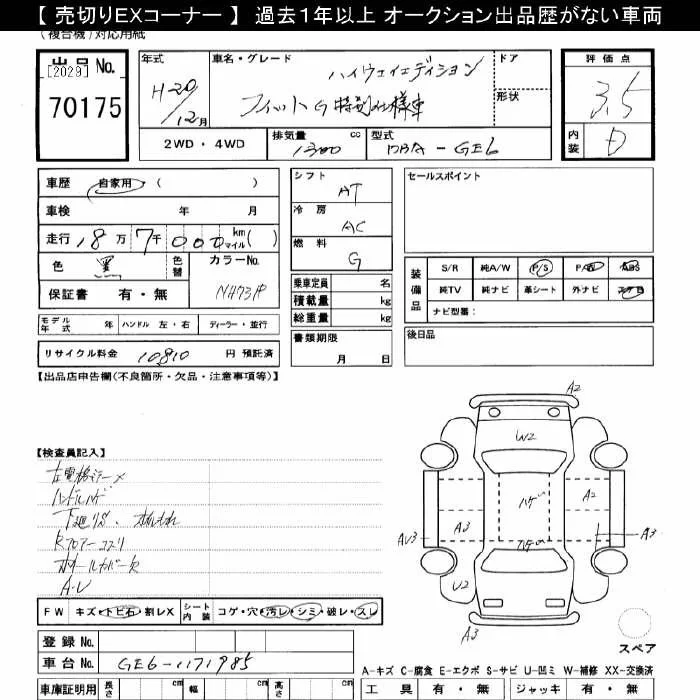 【 売切りEXコーナー 】 過去1年以上 オークション出品歴がない車両
(複合機)対応用紙
出品No.
[2029]
70175
年式
H-20/12月
車名・グレード
ハイウェイエディション
フィットG特別仕様車
ドア
形状
評価点
3.5
内装
D
2WD・4WD
排気量 1300 cc
型式 DBA-GE6
車歴 自家用・( )
車検 年 月
走行 18万7千000 km マイル( )
色 黒 色替 カラーNo.
保証書 有・無 NH731P
シフト AT
冷房 AC
燃料 G
乗車定員 名
積載量 kg
総重量 kg
書類期限
月 日
セールスポイント
装備品
S/R 純A/W P/S P/W ABS
純TV 純ナビ 革シート 外ナビ エアB
ナビ型番:
後日品
モデル年式 年 ハンドル 左・右 ディーラー・並行
リサイクル料金 10,810 円 預託済
【出品店申告欄(不良箇所・欠品・注意事項等)】
【検査員記入】
左電格ミラーメ
ハンドルハゲ
下廻りサビ、
Rフロアーコスリ
ホイールカバー欠
A-U
FW キズ・トビ石・割レX シート内装 コゲ・穴・汚レ・シミ・破レ・スレ
登録No.
車台No. GE6-1171985
車庫証明用 長さ cm 幅 cm 高さ cm
A2
W2
A2
A3
AU3
A3
U2
A3
スペア
A-キズ C-腐食 E-エクボ S-サビ U-凹ミ W-補修 XX-交換済
工具 有・無 ジャッキ 有・無